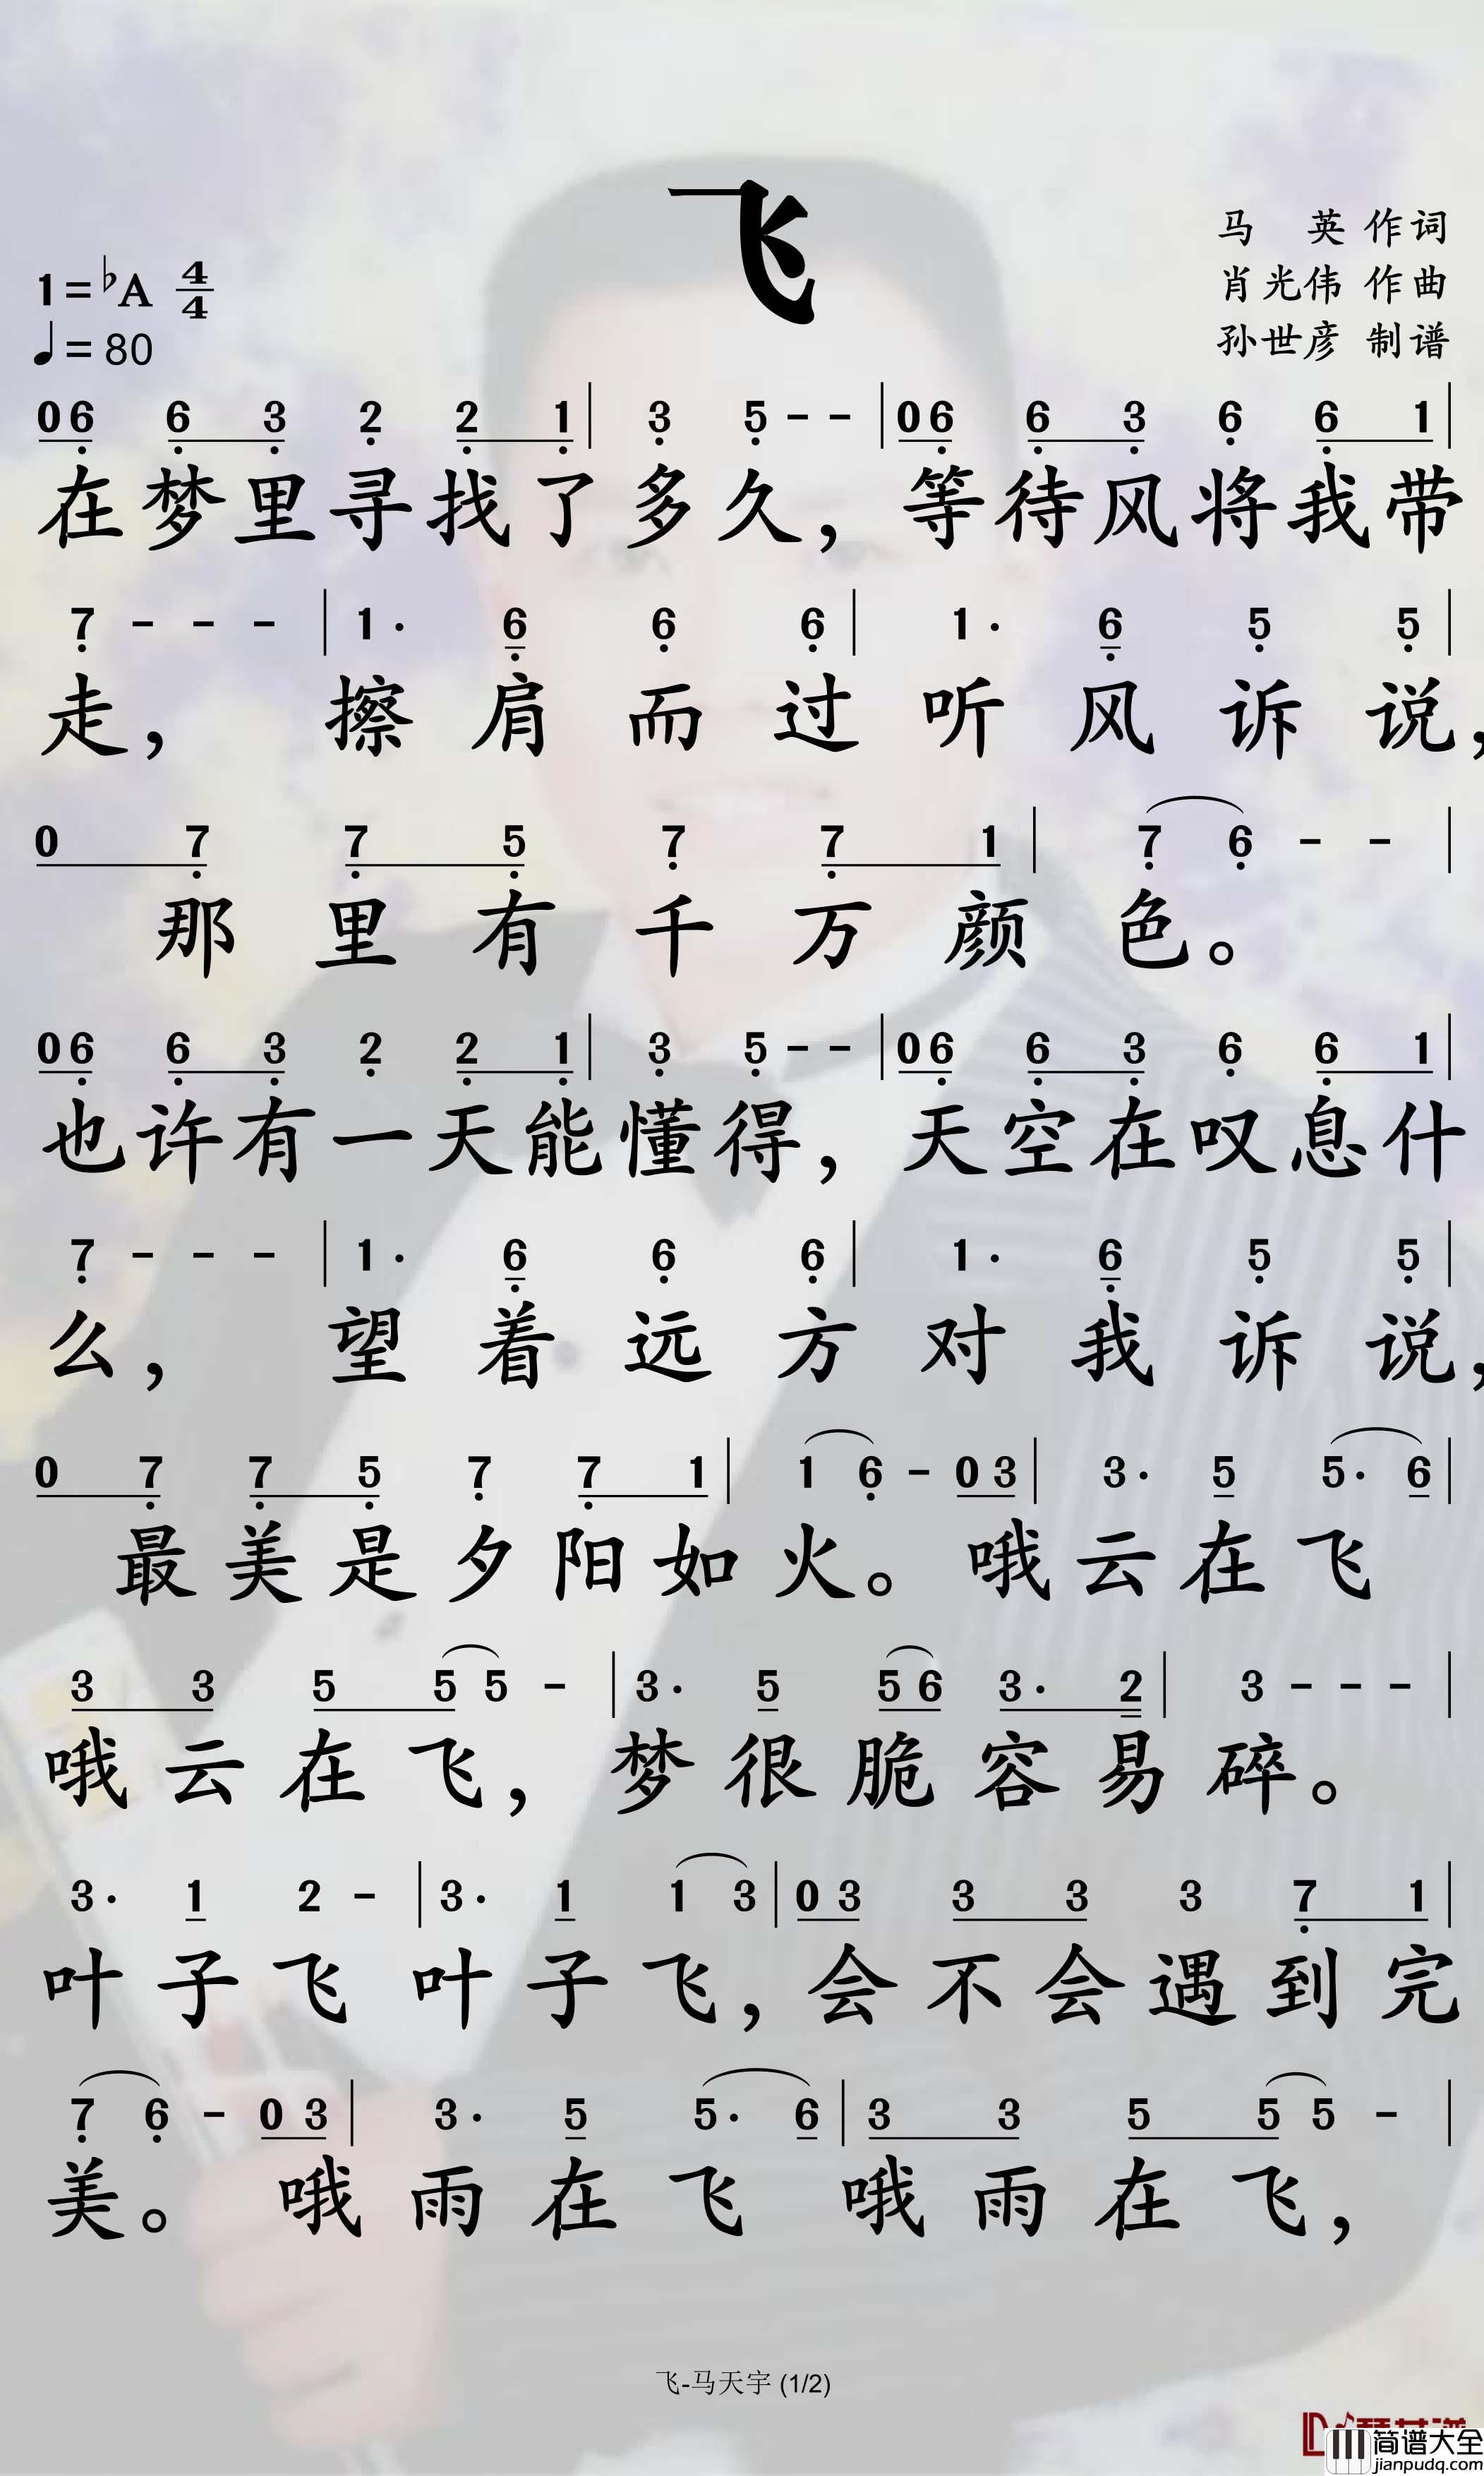 飞
马 英 作词
肖光伟 作曲
孙世彦 制谱
1=♭A 4/4
♩=80
06 6 3 2 2 1 | 3 5 - - | 06 6 3 6 6 1 |
在梦里寻找了多久，等待风将我带
7 - - - | 1· 6 6 6 | 1· 6 5 5 |
走，擦肩而过听风诉说，
0 7 7 5 7 7 1 | 7 6 - - |
那里有千万颜色。
06 6 3 2 2 1 | 3 5 - - | 06 6 3 6 6 1 |
也许有一天能懂得，天空在叹息什
7 - - - | 1· 6 6 6 | 1· 6 5 5 |
么，望着远方对我诉说，
0 7 7 5 7 7 1 | 1 6 - 03 | 3· 5 5· 6 |
最美是夕阳如火。哦云在飞
3 3 5 5 5 - | 3· 5 56 3· 2 | 3 - - - |
哦云在飞，梦很脆容易碎。
3· 1 2 - | 3· 1 1 3 | 03 3 3 3 7 1 |
叶子飞叶子飞，会不会遇到完
7 6 - 03 | 3· 5 5· 6 | 3 3 5 5 5 - |
美。哦雨在飞 哦雨在飞，
飞-马天宇 (1/2)
简谱大全
jianpudq.com